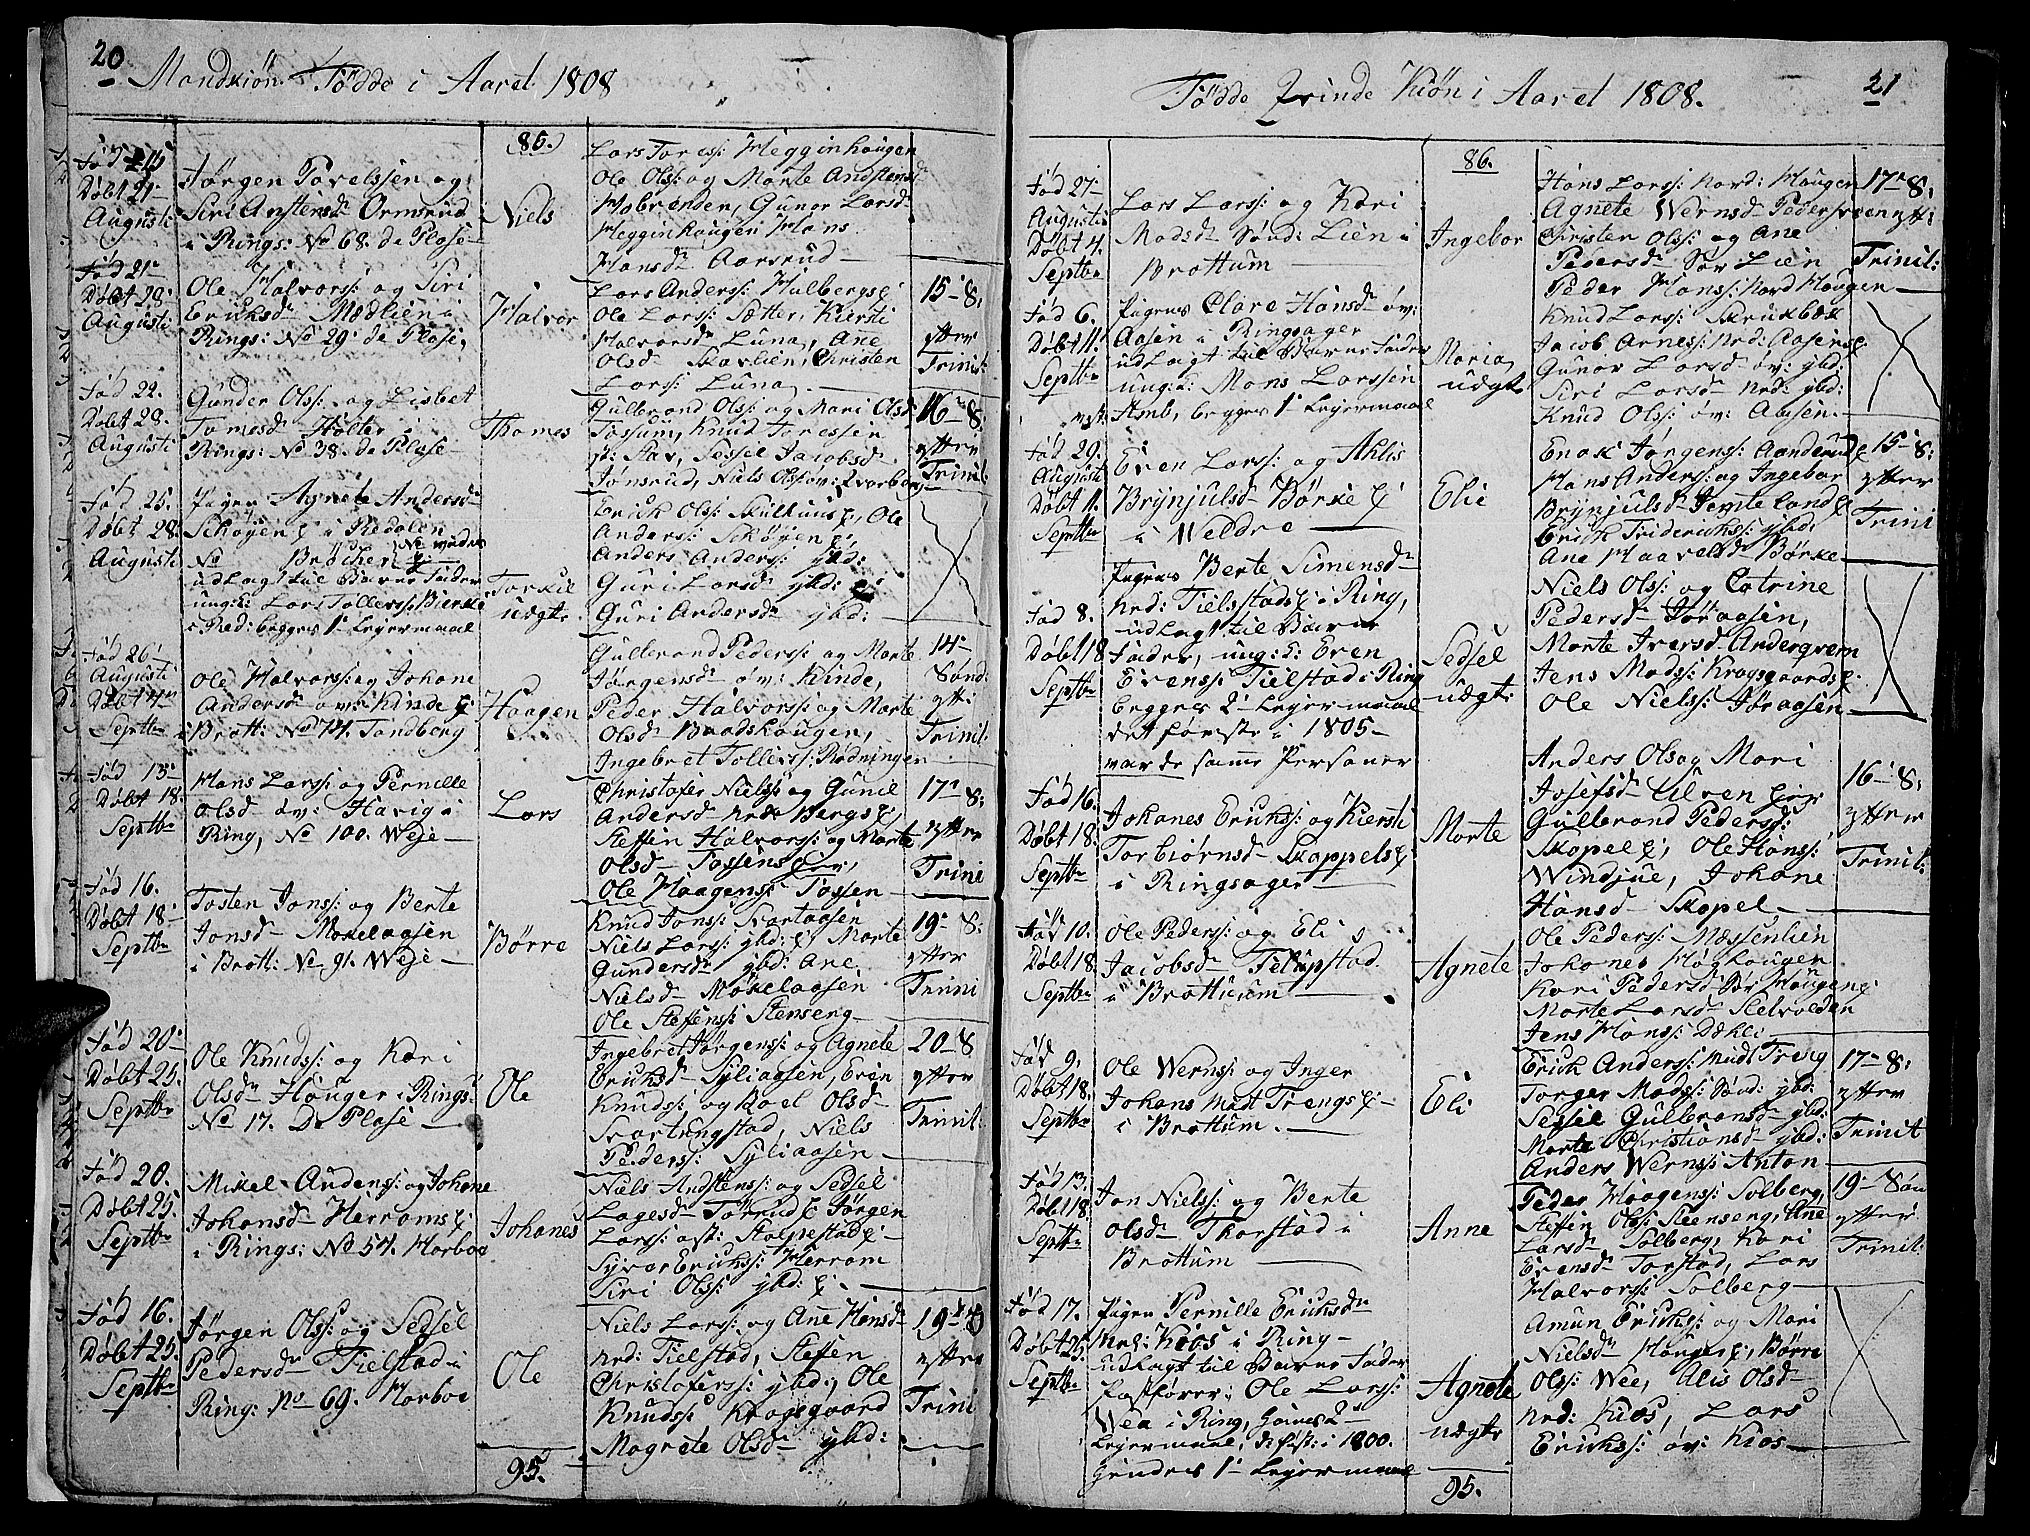 20
Mandkiön Födde i Aaret 1808
Fød 15
Døbt 21
Augusti
Jørgen Povelssen og
Siri Anstensd Ormsrud
i Rings: No 68. de Plase
86.
Niels
Lars Toress: Hegginhaugen
Ole Olss: og Marte Andstensd
Mobranden, Gunor Larsd
Hegginhaugen Hans
Hansd Aarsrud
Fød 21
Døbt 28
Augusti
Ole Halvorss: og Siri
Ericksd Mædlien i
Rings: No 29: de Plase,
Halvor
Lars Anderss: Hulbergs
Ole Larss: Sætter, Kiersti
Halvorsd Luna, Ane
Olsd Skavlien, Christen
Larss: Luna
15 8
ytter
Trinit:
Fød 22.
Døbt 28.
Augusti
Gunder Olss: og Lisbet
Tomesd Holter i
Rings: No 38. de Plase
Thomas
Gulbrand Olss: og Mari Olsd
Fossum, Knud Toressen
Sessel Jacobsd
Jønsrud, Niels Olss øv: Kvarberg
16 8
ytter
Trinit:
Fød 25.
Døbt 28.
Augusti
Pigen Agnete Andersd
Schøyen i Redalen
No Brøcher
udlagt til Barne Fader
ung: k: Lars Tollerss: Bierke
i Red: begges 1 Leyermaal
Torkil
uægte
Erick Olss: Skulhuus, Ole
Anderss: Schøyen
Anders Anderss: ybd:
Guri Larsd ybd:
Guri Andersd ybd:
Fød 26
Augusti
Døbt 4
Septbr
Ole Halvorss: og Johane
Andersd øv: Kinde
i Brøtt: No 74. Tandberg
Haagen
Gulbrand Pederss: og Marte
Jørgensd øv: Kinde,
Peder Halvorss: og Marte
Olsd Braadshaugen,
Ingebret Tollerss: Rødningen
14
Sønd
ytt:
Trinit:
Fød 15
Døbt 18.
Septbr
Hans Larss: og Pernille
Olsd øv: Havig i
Ring, No 100. Weje
Lars
Christofer Nielss: og Gunil
Andersd nedr Bergs
Steffen Halvorss: og Marte
Olsd Fossens
Ole Haagenss: Fossen
17 8
ytter
Trini
Fød 16.
Døbt 18
Septbr
Tosten Jonss: og Berte
Jonsd Moxelaasen
i Brøtt: No 91. Weje
Børre
Knud Jonss: Svartaasen
Niels Larss: ybd: Marte
Gundersd ybd: Ane
Nielsd Moxelaasen
Ole Steffenss: Stenseng
19 8
ytter
Trini
Fød 20
Døbt 25.
Septbr
Ole Knudss: og Kari
Olsd Honger i Rings
No 17. De Plase
Ole
Ingebret Jørgenss: og Agnete
Ericksd Syliaasen, Even
Knudss: og Boel Olsd
Svartungstad, Niels
Pederss: Syliaasen
20 8
ytter
Trinit:
Fød 20.
Døbt 25.
Septbr
Mikel Anderss: og Johane
Johansd Herrams
i Rings: No 54. Horboe
Johanes
Niels Andstenss: og Sedsel
Lagesd Torrud Jørgen
Larss: øst: Stolpestad
Syvar Erickss: Herram
Siri Olss: ybd:
Fød 16.
Døbt 25.
Septbr
Jørgen Olss: og Sedsel
Pedersd Tielstad i
Ring: No 69. Horboe
Ole
Niels Larss: og Ane Hansd
nrd: Tielstad, Steffen
Christoferss: ybd:, Ole
Knudss: Kragsgaard
Magrete Olsd ybd:
19
ytter
Trini
95.
Födde Qvinde Kiön i Aaret 1808.
21
Fød 27
Augusti
Døbt 4.
Septbr
Lars Larss: og Kari
Madsd Sønd: Lien i
Brøttum
86.
Ingebor
Hans Larss: nord: Haugen
Agnete Wernsd Pedersveen
Christen Olss: og Ane
Pedersd Sør Lien
Peder Hanss: Nord Haugen
17 8:
ytt:
Trinit:
Fød 6.
Døbt 11.
Septbr
Pigens Clare Hansd øv:
Aasen i Ringsager
udlagt til Barne Fader
ung: k: Mons Larssen
Amb, begges 1 Leyermaal
Maria
uægt
Knud Larss: Skrukbæk
Jacob Arness: nrd: Aasens
Gunor Larsd øv: ybd:
Siri Larsd nrd: ybd:
Knud Olss: øv: Aasen.
Fød 29.
Augusti
Døbt 11.
Septbr
Even Larss: og Ahlis
Brynjulsd Børke
i Weldre
Elie
Enok Jørgenss: Aanderud
Hans Anderss: og Ingebor
Brynjulsd Jemteland
Erick Friderickss: ybd:
Ane Haavelsd Børke
15 8:
ytter
Trini
Fød 8.
Døbt 18
Septbr
Pigens Berte Simensd
nrd: Tielstads i Ring,
udlagt til Barne
Fader, ung: k: Even
Evenss: Tielstad i Ring
begges 2 Leyermaal
det første i 1805
var de samme Personer
Sedsel
uægt:
Niels Olss: og Catrine
Pedersd Jøraasen,
Marte Iversd Anderqvern
Jens Madss: Kragsgaards
Ole Nielss: Jøraasen
Fød 16.
Døbt 18:
Septbr
Johanes Erickss: og Kiersti
Torbiørnsd Skappels
i Ringsager
Marte
Anders Ols og Mari
Josefsd Ulven
Gulbrand Pederss:
Skapel, Ole Hanss:
Windjue, Johane
Hansd Skapel
16 8:
ytter
Trinit:
Fød 10.
Døbt 18.
Septbr
Ole Pederss: og Eli
Jacobsd Felupstad
i Brøttum
Agnete
Ole Pederss: Mæssenlien
Johanes Høghaugen
Kari Pedersd Sør Haugen
Marte Larsd Stelvolden
Jens Hanss: Dækli
Fød 9.
Døbt 18.
Septbr
Ole Wernss: og Inger
Johans Madt Trengs
i Brøttum.
Eli
Erick Anderss: Mudt Treng
Torger Madss: Sønd: ybd:
Sessel Gulbransd ybd:
Marte Christiansd ybd:
Anders Wernss: Anton
17 8:
ytter
Trinit
Fød 13.
Døbt 18.
Septbr
Jon Nielss: og Berte
Olsd Thorstad i
Brøttum
Anne
Peder Haagenss: Solberg,
Steffen Olss: Steenseng, Ane
Larsd Solberg, Kari
Evensd Torstad, Lars
Halvorss: Solberg
19 Søn
ytter
Trinit:
Fød 17.
Døbt 25.
Septbr
Pigen Pernille Ericksd
nrd: Kios i Ring
udlagt til Barne Fader
Ole Larss:
Wea i Ring, hans 2
Leyermaal, de første i 1800.
hendes 1 Leyermaal
Agnete
uægte
Amun Erickss: og Mari
Nielsd Honger, Børre
Olss: Wee, Alis Olsd
nrd: Kios, Lars
Erickss: øv: Kios
95.